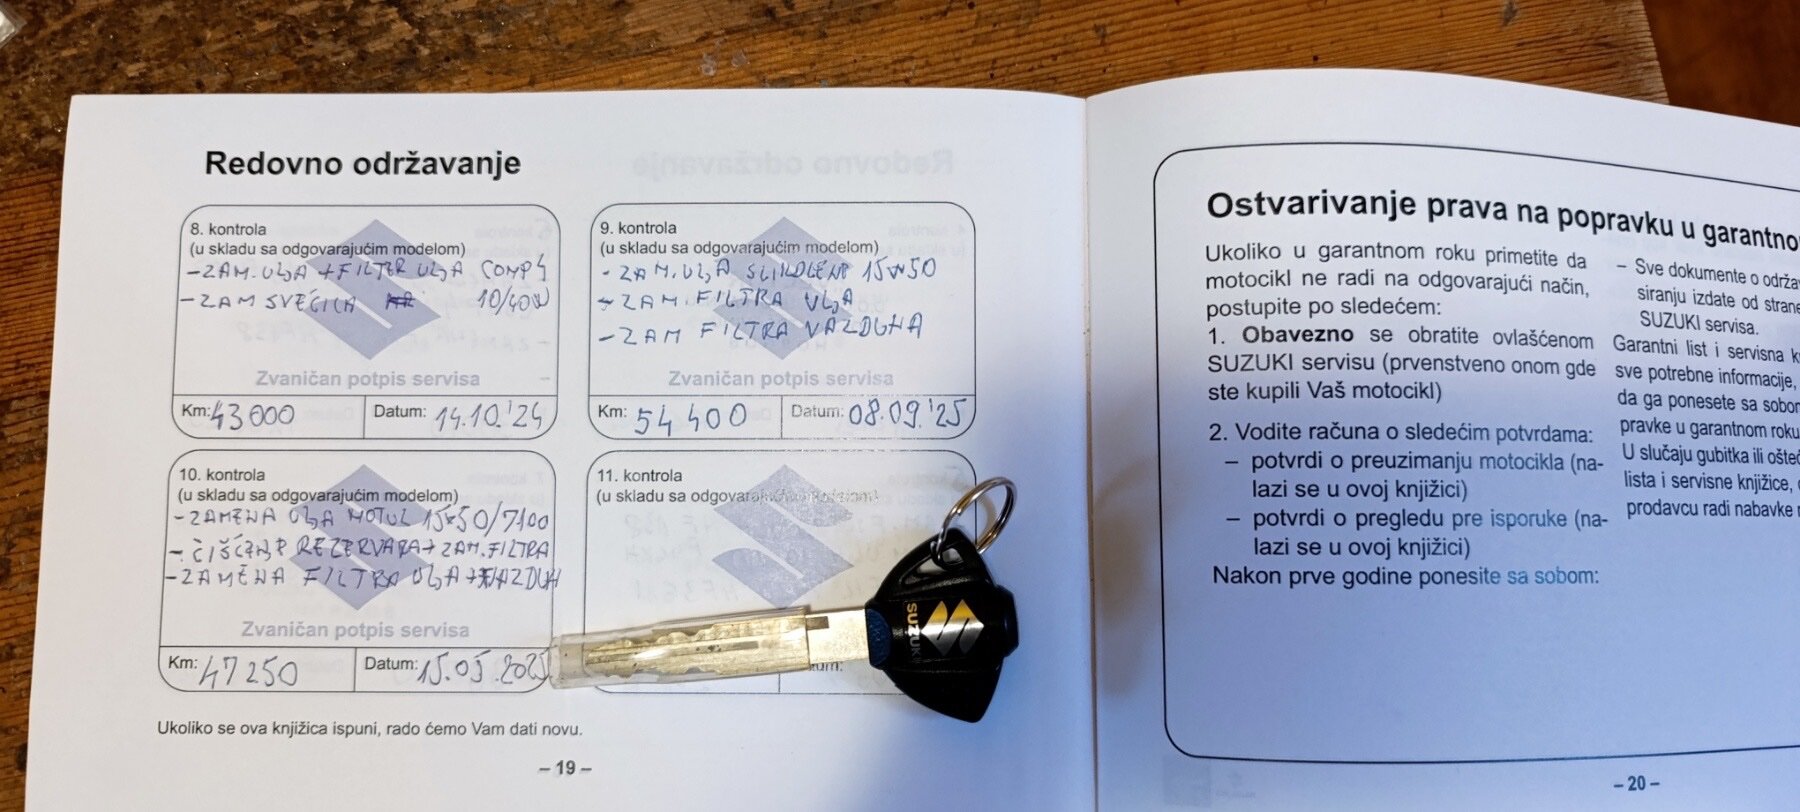 Redovno održavanje
8. kontrola
(u skladu sa odgovarajućim modelom)
-ZAM. ULJA + FILTER ULJA COMP4
-ZAM SVEĆICA 10/40W
Zvaničan potpis servisa
Km: 43000 Datum: 14.10.'24
9. kontrola
(u skladu sa odgovarajućim modelom)
- ZAM. ULJA 15W50
- ZAM. FILTRA ULJA
- ZAM FILTRA VAZDUHA
Zvaničan potpis servisa
Km: 54400 Datum: 08.09.'25
10. kontrola
(u skladu sa odgovarajućim modelom)
-ZAMENA ULJA MOTUL 15W50/7100
- ČIŠĆENJE REZERVARA + ZAM. FILTRA
-ZAMENA FILTRA ULJA + VAZDUH
Zvaničan potpis servisa
Km: 47250 Datum: 15.05.2025
11. kontrola
(u skladu sa odgovarajućim modelom)
SUZUKI
Ukoliko se ova knjižica ispuni, rado ćemo Vam dati novu.
– 19 –
Ostvarivanje prava na popravku u
Ukoliko u garantnom roku primetite da
motocikl ne radi na odgovarajući način,
postupite po sledećem:
1. Obavezno se obratite ovlašćenom
SUZUKI servisu (prvenstveno onom gde
ste kupili Vaš motocikl)
2. Vodite računa o sledećim potvrdama:
– potvrdi o preuzimanju motocikla (na-
lazi se u ovoj knjižici)
– potvrdi o pregledu pre isporuke (na-
lazi se u ovoj knjižici)
Nakon prve godine ponesite sa sobom:
– Sve dokumente o
siranju izdate od strane
SUZUKI servisa.
Garantni list i servisna
sve potrebne informacije,
da ga ponesete sa sobom
pravke u garantnom roku
U slučaju gubitka ili
lista i servisne knjižice,
prodavcu radi nabavke
– 20 –